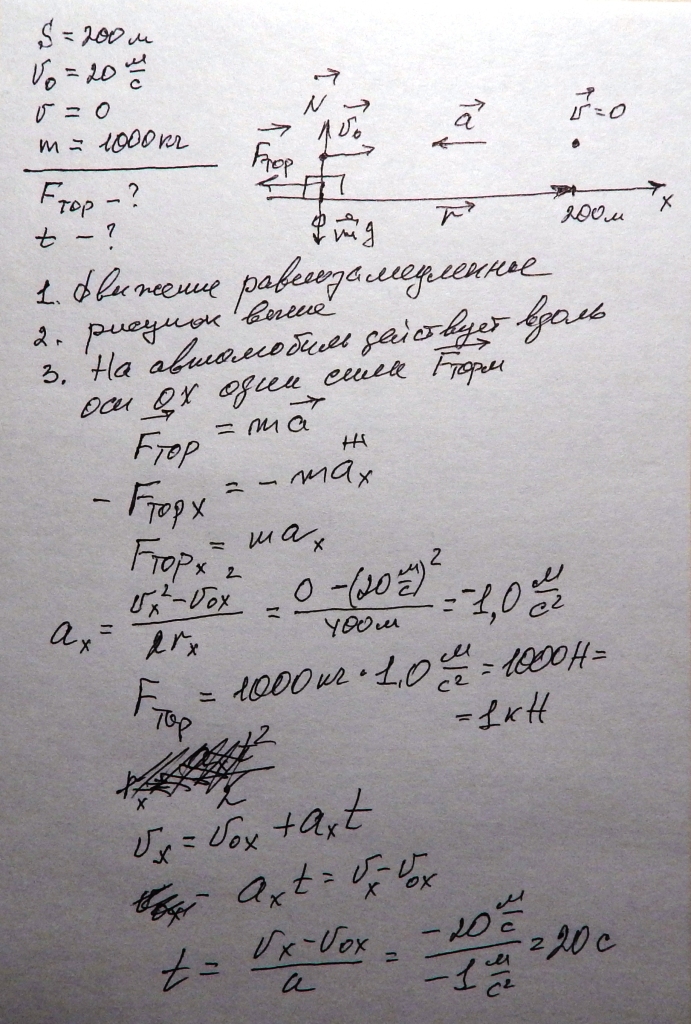 S = 200 м
v₀ = 20 м/с
v = 0
m = 1000 кг
Fтор - ?
t - ?
N v₀ a v = 0
Fтор
mg r 200 м x
1. движение равнозамедленное
2. рисунок выше
3. На автомобиль действует вдоль
оси OX одна сила Fторм
Fтор = ma
- Fтор x = - max
Fтор x = max
ax = (vx² - v₀x²) / 2rx = (0 - (20 м/с)²) / 400 м = -1,0 м/с²
Fтор = 1000 кг · 1,0 м/с² = 1000 Н =
= 1 кН
vx = v₀x + axt
- axt = vx - v₀x
t = (vx - v₀x) / a = (-20 м/с) / (-1 м/с²) = 20 с